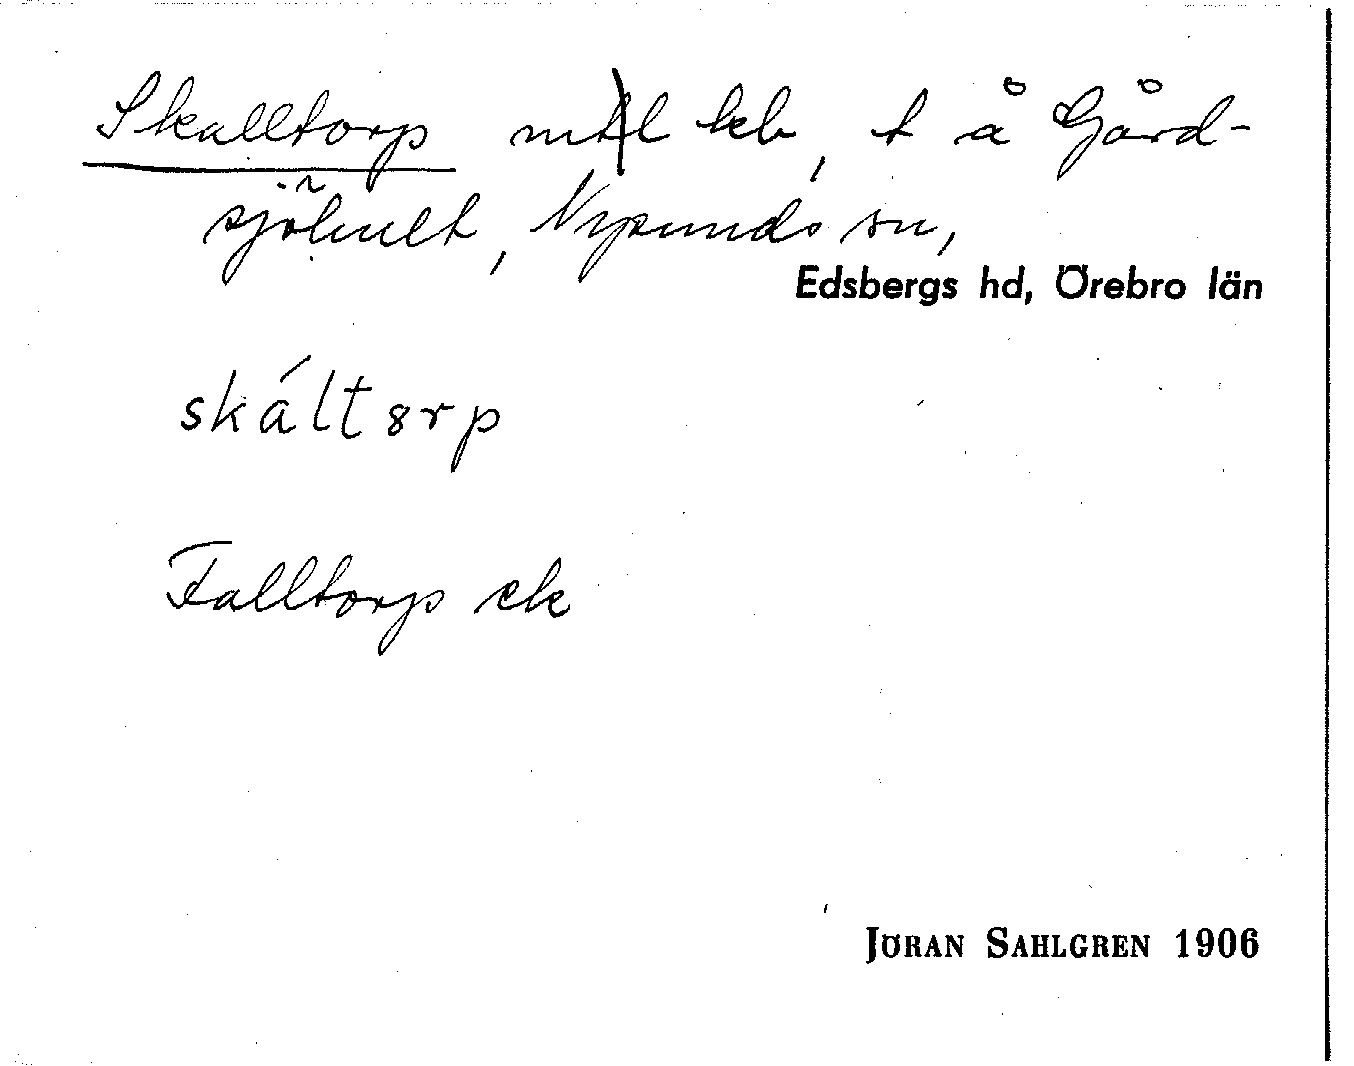 Skalltorp mtl kb, t å Gård-
sjöhult, Nysunds sn,
Edsbergs hd, Örebro län
skáltȣrp
Falltorp ek
JÖRAN SAHLGREN 1906